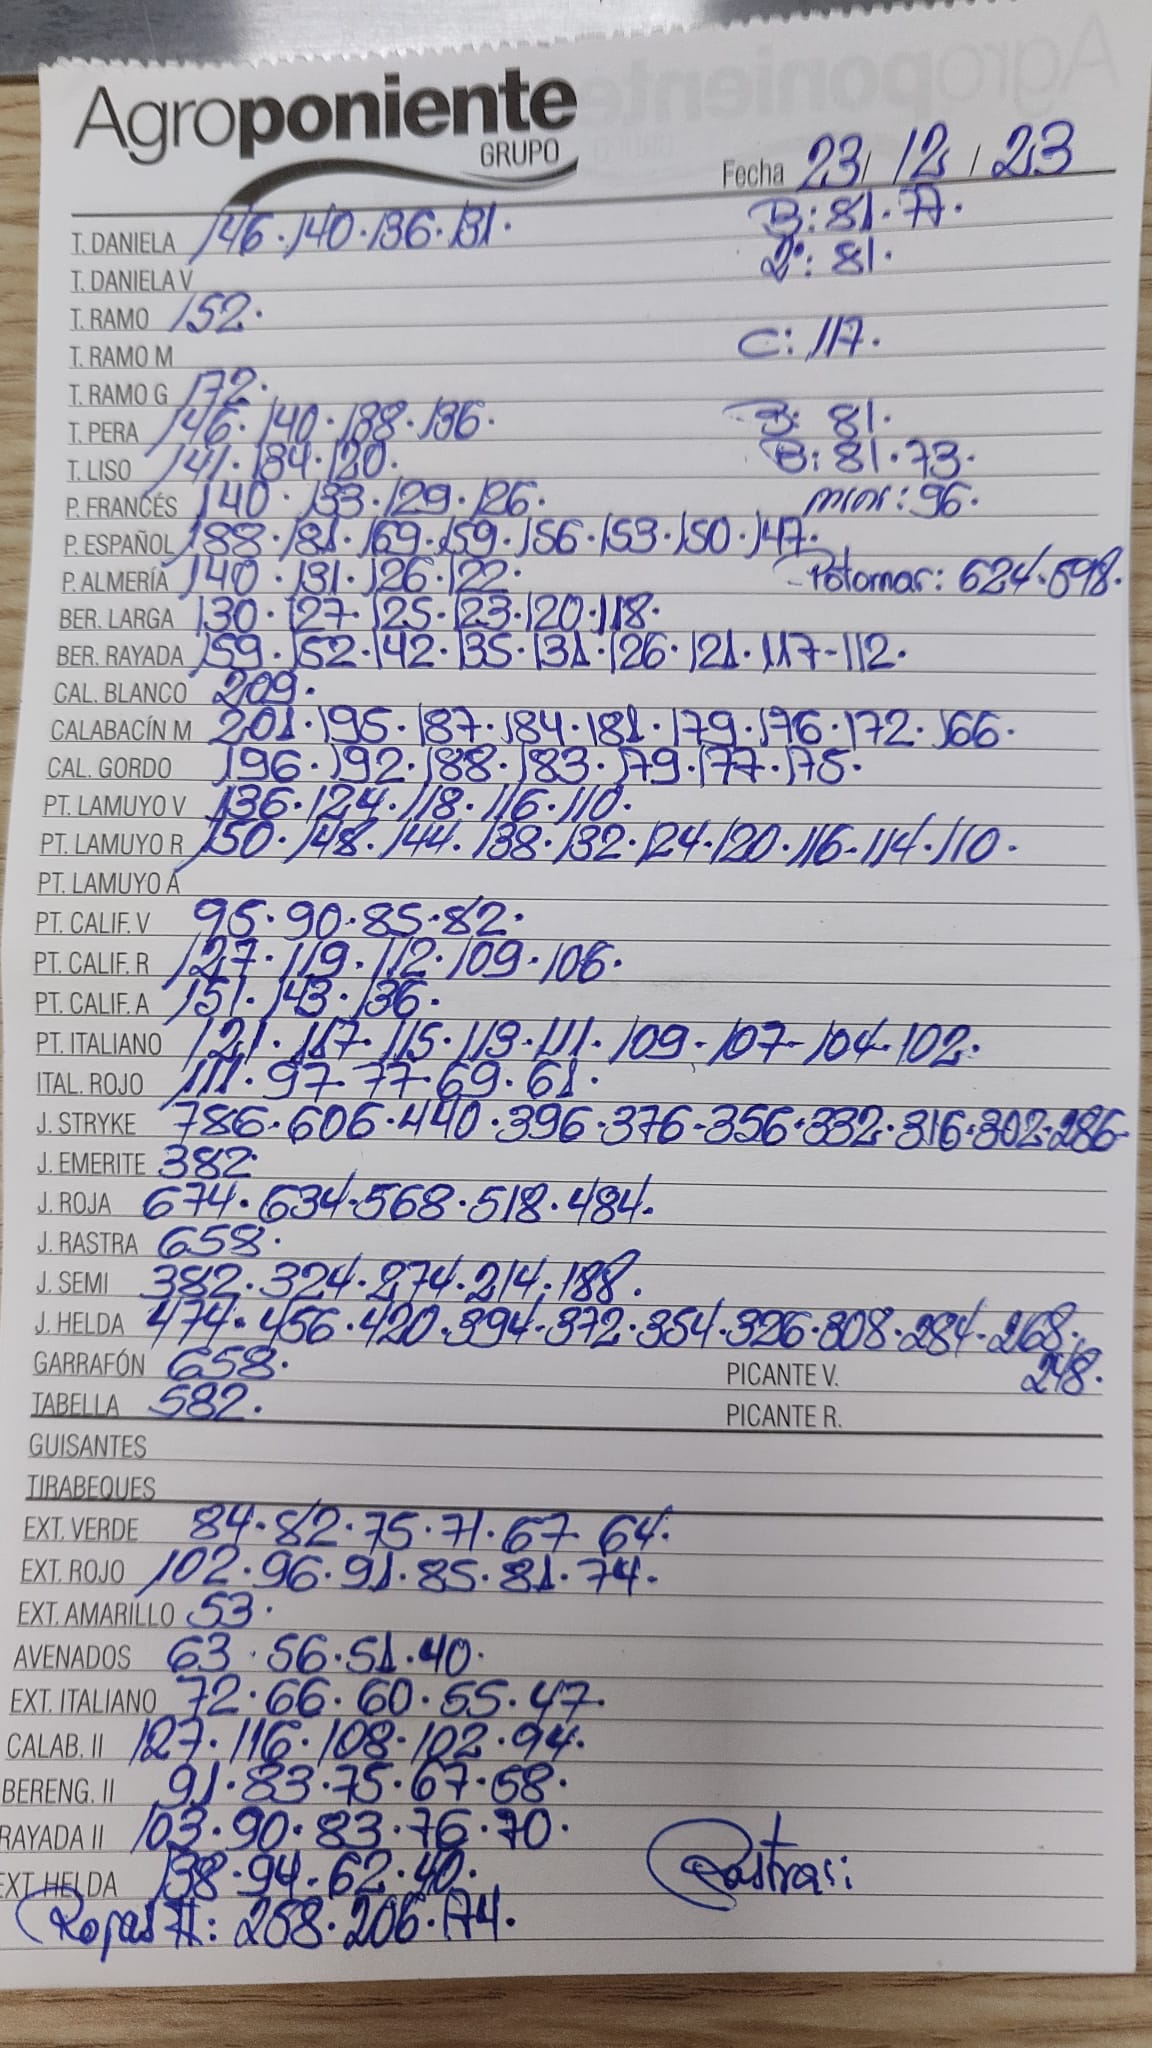 Agroponiente
GRUPO
Fecha 23/12/23
T. DANIELA 146·140·136·131· B: 81·77·
T. DANIELA V 2ª: 81·
T. RAMO 152·
T. RAMO M C: 117·
T. RAMO G 172·
T. PERA 146·140·138·136· B: 81·
T. LISO 141·134·120· B: 81·73·
P. FRANCÉS 140·133·129·126· mini: 96·
P. ESPAÑOL 188·181·169·159·156·153·150·147·
P. ALMERÍA 140·131·126·122· Potomar: 624·598·
BER. LARGA 130·127·125·123·120·118·
BER. RAYADA 159·152·142·135·131·126·121·117-112·
CAL. BLANCO 209·
CALABACÍN M 201·195·187·184·181·179·176·172·166·
CAL. GORDO 196·192·188·183·179·177·175·
PT. LAMUYO V 136·124·118·116·110·
PT. LAMUYO R 150·148·144·138·132·124·120·116-114·110·
PT. LAMUYO A
PT. CALIF. V 95·90·85·82·
PT. CALIF. R 127·119·112·109·106·
PT. CALIF. A 151·143·136·
PT. ITALIANO 121·117·115·113·111·109·107-104·102·
ITAL. ROJO 111·97·77·69·61·
J. STRYKE 786·606·440·396·376-356·332·316·302·286-
J. EMERITE 382·
J. ROJA 674·634·568·518·484·
J. RASTRA 658·
J. SEMI 382·324·274·214·188·
J. HELDA 474·456·420·394·372·354·326·308·284·268·
GARRAFÓN 658· PICANTE V. 248·
TABELLA 582· PICANTE R.
GUISANTES
TIRABEQUES
EXT. VERDE 84·82·75·71·67·64·
EXT. ROJO 102·96·91·85·81·74·
EXT. AMARILLO 53·
AVENADOS 63·56·51·40·
EXT. ITALIANO 72·66·60·55·47·
CALAB. II 127·116·108·102·94·
BERENG. II 91·83·75·67·58·
RAYADA II 103·90·83·76·70·
EXT HELDA 138·94·62·40· Rastras:
Rojas II: 258·206·174·